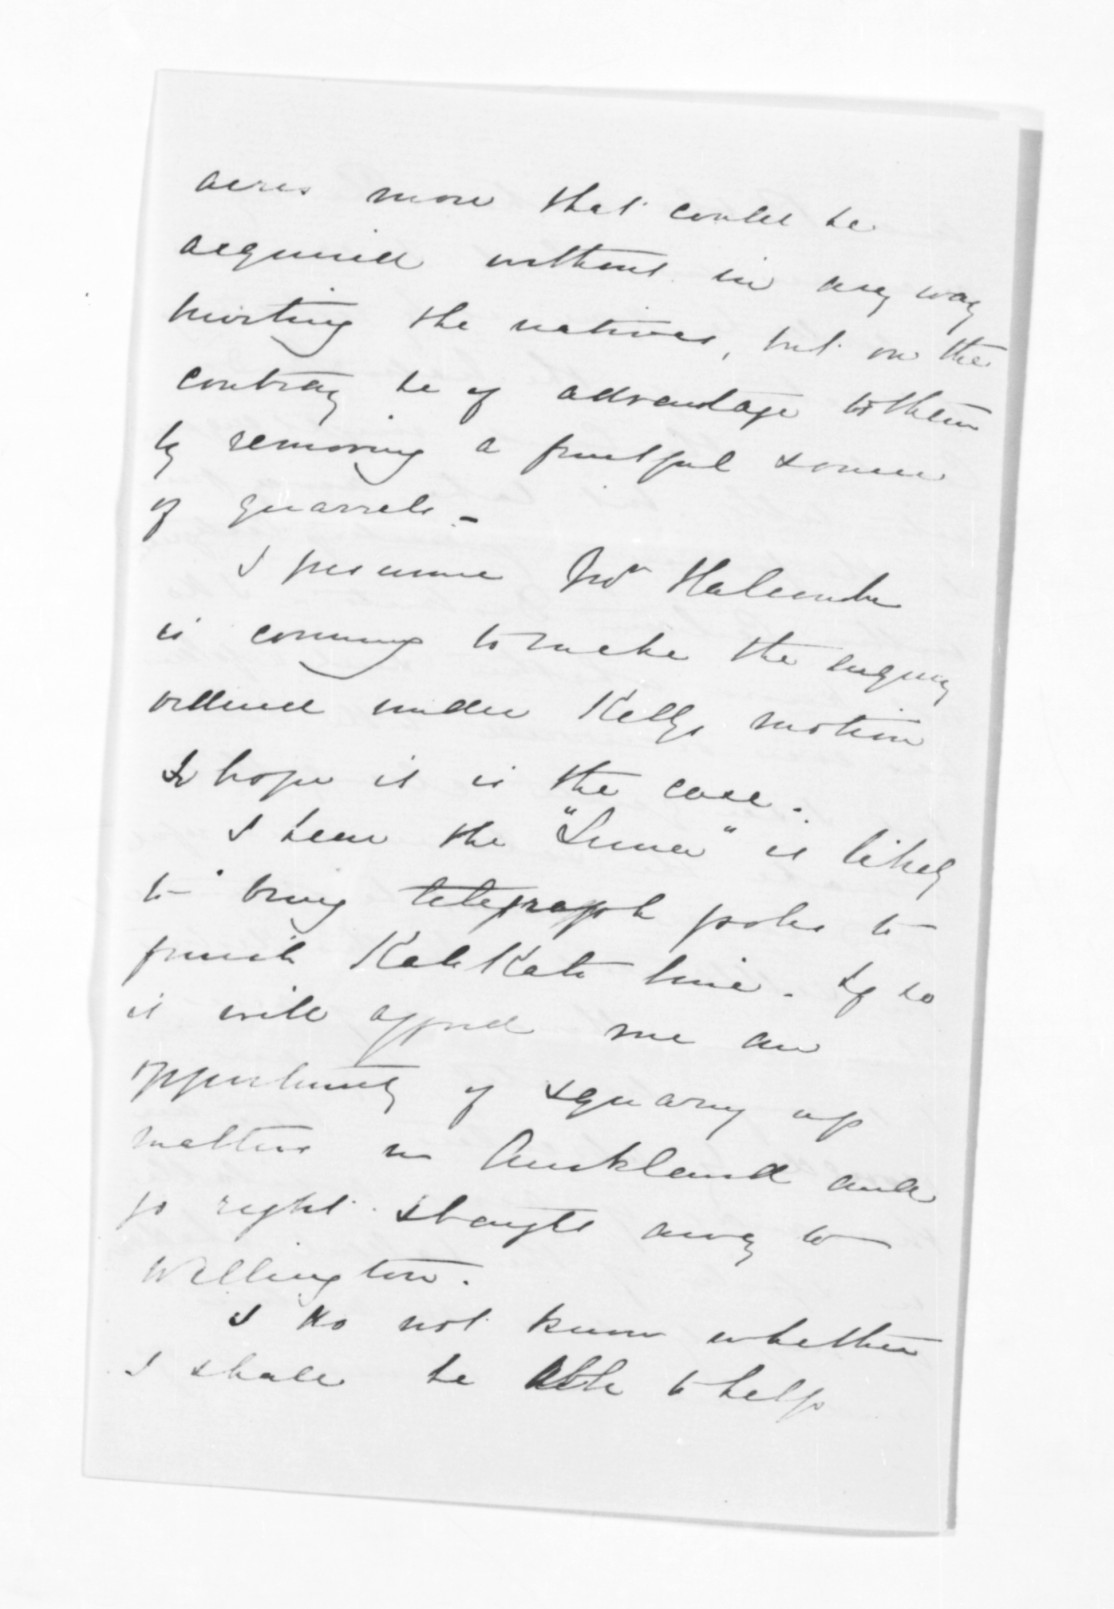 acres more that could be
acquired without in any way
hurting the natives, but on the
contrary be of advantage to them
by removing a fruitful source
of quarrels. -
I presume Mr Halcombe
is coming to make the enquiry
ordered under Kelly's motion
I hope it is the case.
I hear the "Luna" is likely
to bring telegraph poles to
finish Kati Kati line. If so
it will afford me an
opportunity of squaring up
matters in Auckland and
go right straight away to
Wellington.
I do not know whether
I shall be able to help